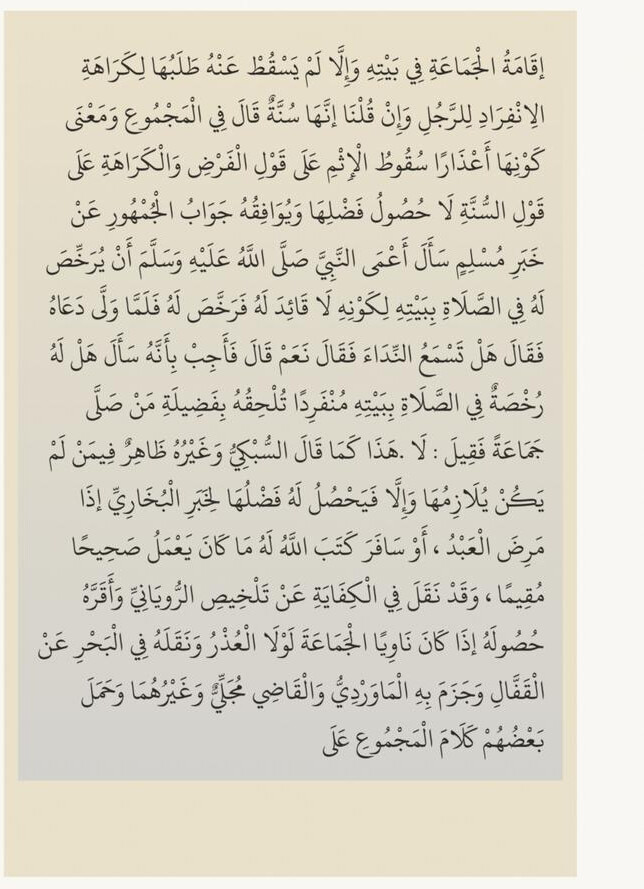 إقَامَةُ الْجَمَاعَةِ فِي بَيْتِهِ وَإِلَّا لَمْ يَسْقُطْ عَنْهُ طَلَبُهَا لِكَرَاهَةِ
الِانْفِرَادِ لِلرَّجُلِ وَإِنْ قُلْنَا إنَّهَا سُنَّةٌ قَالَ فِي الْمَجْمُوعِ وَمَعْنَى
كَوْنِهَا أَعْذَارًا سُقُوطُ الْإِثْمِ عَلَى قَوْلِ الْفَرْضِ وَالْكَرَاهَةِ عَلَى
قَوْلِ السُّنَّةِ لَا حُصُولُ فَضْلِهَا وَيُوَافِقُهُ جَوَابُ الْجُمْهُورِ عَنْ
خَبَرِ مُسْلِمٍ سَأَلَ أَعْمَى النَّبِيَّ صَلَّى اللَّهُ عَلَيْهِ وَسَلَّمَ أَنْ يُرَخِّصَ
لَهُ فِي الصَّلَاةِ بِبَيْتِهِ لِكَوْنِهِ لَا قَائِدَ لَهُ فَرَخَّصَ لَهُ فَلَمَّا وَلَّى دَعَاهُ
فَقَالَ هَلْ تَسْمَعُ النِّدَاءَ فَقَالَ نَعَمْ قَالَ فَأَجِبْ بِأَنَّهُ سَأَلَ هَلْ لَهُ
رُخْصَةٌ فِي الصَّلَاةِ بِبَيْتِهِ مُنْفَرِدًا تُلْحِقُهُ بِفَضِيلَةِ مَنْ صَلَّى
جَمَاعَةً فَقِيلَ : لَا .هَذَا كَمَا قَالَ السُّبْكِيُّ وَغَيْرُهُ ظَاهِرٌ فِيمَنْ لَمْ
يَكُنْ يُلَازِمُهَا وَإِلَّا فَيَحْصُلُ لَهُ فَضْلُهَا لِخَبَرِ الْبُخَارِيِّ إذَا
مَرِضَ الْعَبْدُ ، أَوْ سَافَرَ كَتَبَ اللَّهُ لَهُ مَا كَانَ يَعْمَلُ صَحِيحًا
مُقِيمًا ، وَقَدْ نَقَلَ فِي الْكِفَايَةِ عَنْ تَلْخِيصِ الرُّويَانِيِّ وَأَقَرَّهُ
حُصُولَهُ إذَا كَانَ نَاوِيًا الْجَمَاعَةَ لَوْلَا الْعُذْرُ وَنَقَلَهُ فِي الْبَحْرِ عَنْ
الْقَفَّالِ وَجَزَمَ بِهِ الْمَاوَرْدِيُّ وَالْقَاضِي مُجَلِّيٌّ وَغَيْرُهُمَا وَحَمَلَ
بَعْضُهُمْ كَلَامَ الْمَجْمُوعِ عَلَى